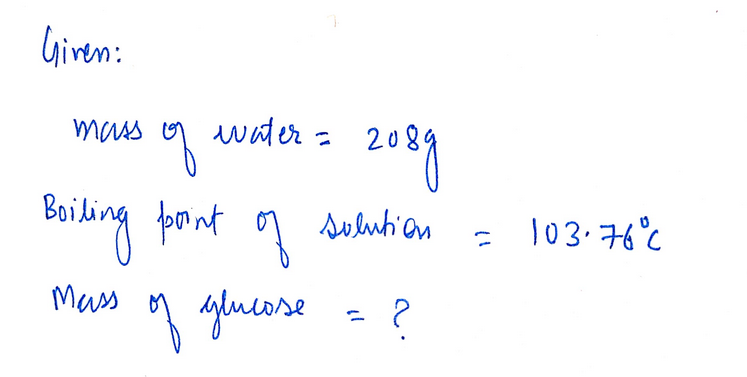 Given:
mass of water = 208g
Boiling point of solution = 103.76°C
Mass of glucose = ?